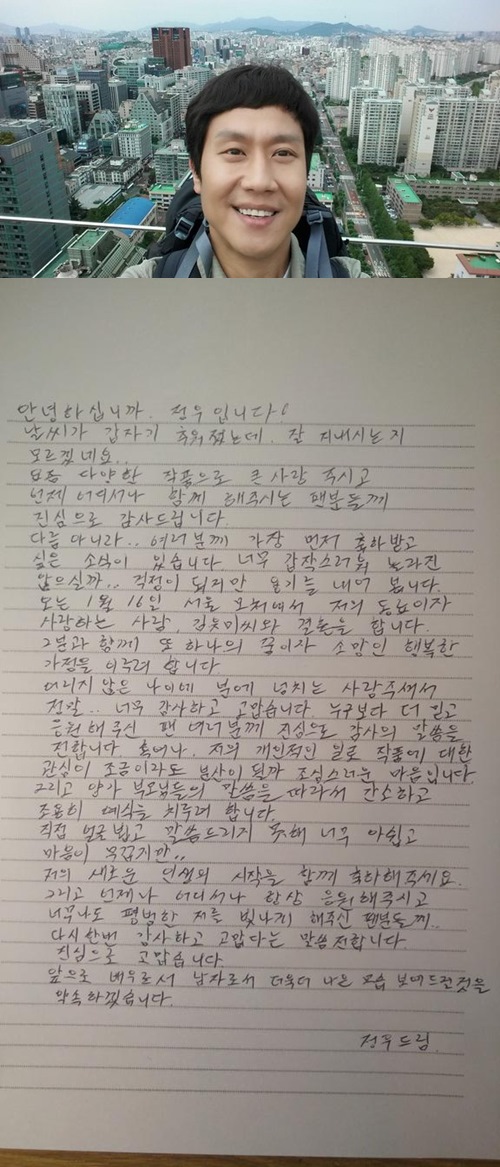 안녕하십니까. 정우입니다!
날씨가 갑자기 추워졌는데. 잘 지내시는지
모르겠네요..
요즘 다양한 작품으로 큰 사랑 주시고
언제 어디서나 함께 해주시는 팬분들께
진심으로 감사드립니다.
다름 아니라.. 여러분께 가장 먼저 축하받고
싶은 소식이 있습니다. 너무 갑작스러워 놀라진
않으실까.. 걱정이 되지만 용기를 내어 봅니다.
오는 1월 16일 서울 모처에서 저의 동료이자
사랑하는 사람 김유미씨와 결혼을 합니다.
그분과 함께 또 하나의 꿈이자 소망인 행복한
가정을 이루려 합니다.
어리지 않은 나이에 분에 넘치는 사랑주셔서
정말.. 너무 감사하고 고맙습니다. 누구보다 더 믿고
응원해 주신 팬 여러분께 진심으로 감사의 말씀을
전합니다. 혹여나. 저의 개인적인 일로 작품에 대한
관심이 조금이라도 분산이 될까 조심스러운 마음입니다.
그리고 양가 부모님들의 말씀을 따라서 간소하고
조용히 예식을 치루려 합니다.
직접 얼굴 뵙고 말씀드리지 못해 너무 아쉽고
마음이 무겁지만..
저의 새로운 인생의 시작을 함께 축하해주세요.
그리고 언제나 어디서나 항상 응원해주시고
너무나도 평범한 저를 빛나게 해주신 팬분들께..
다시한번 감사하고 고맙다는 말씀 전합니다
진심으로 고맙습니다.
앞으로 배우로서 남자로서 더욱더 나은 모습 보여드릴것을
약속하겠습니다.
정우드림.